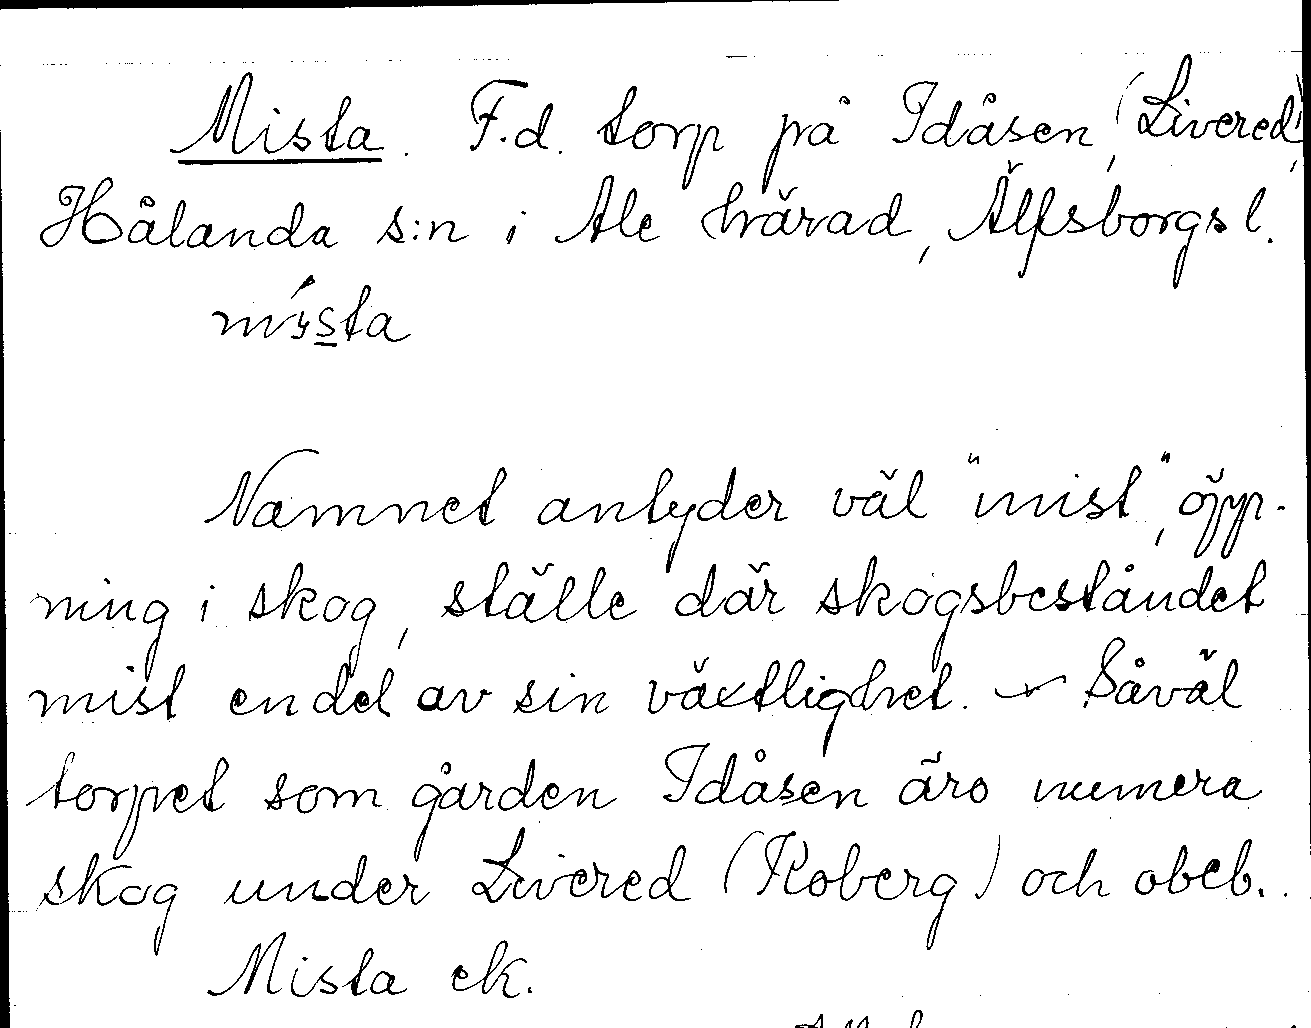 Mista. F.d. torp på Idåsen, (Livered),
Hålanda s:n i Ale härad, Älfsborgs l.
místa
Namnet antyder väl "mist", öpp-
ning i skog, ställe där skogsbeståndet
mist en del av sin växtlighet. - Såväl
torpet som gården Idåsen äro numera
skog under Livered (Koberg) och obeb.
Mista ek.